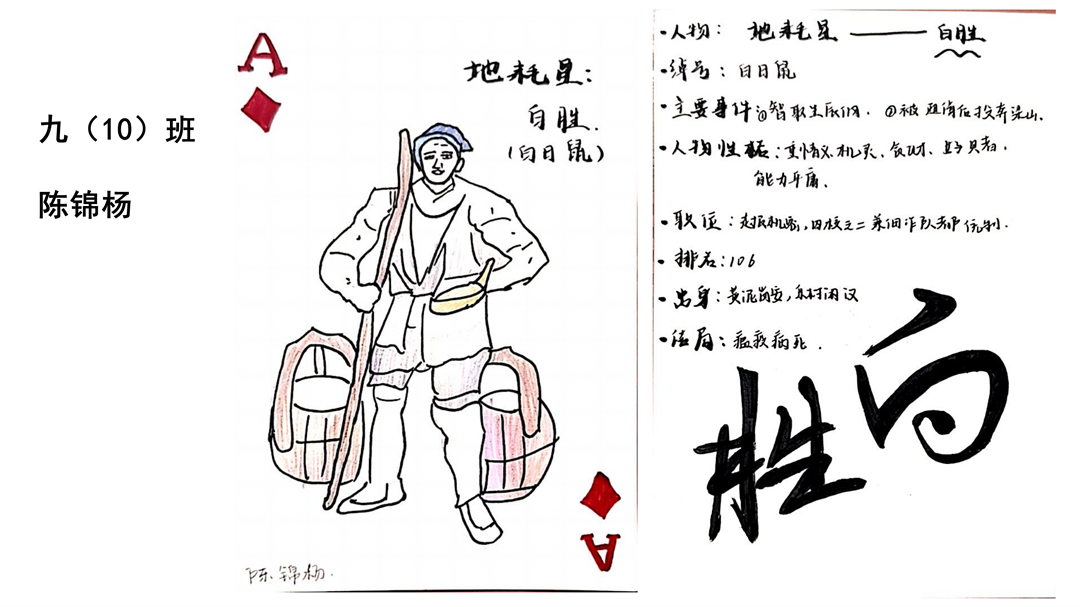 九（10）班
陈锦杨
A
地耗星：
白胜.
（白日鼠）
A
陈锦杨.
·人物： 地耗星 —— 白胜
·绰号：白日鼠
·主要事件①智取生辰纲. ②被 后投奔梁山.
·人物性格：重情义.机灵、贪财、
能力平庸.
·职位：
·排名：106
·出身：黄泥岗 闲汉
·结局：瘟疫病死.
白
胜